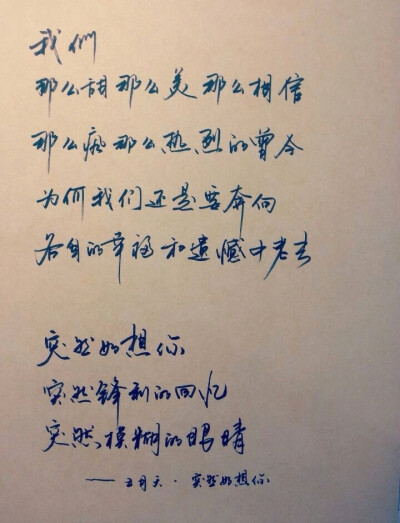 我们
那么甜那么美那么相信
那么疯那么热烈的曾今
为何我们还是要奔向
各自的幸福和遗憾中老去
突然好想你
突然锋利的回忆
突然模糊的眼睛
——五月天·突然好想你